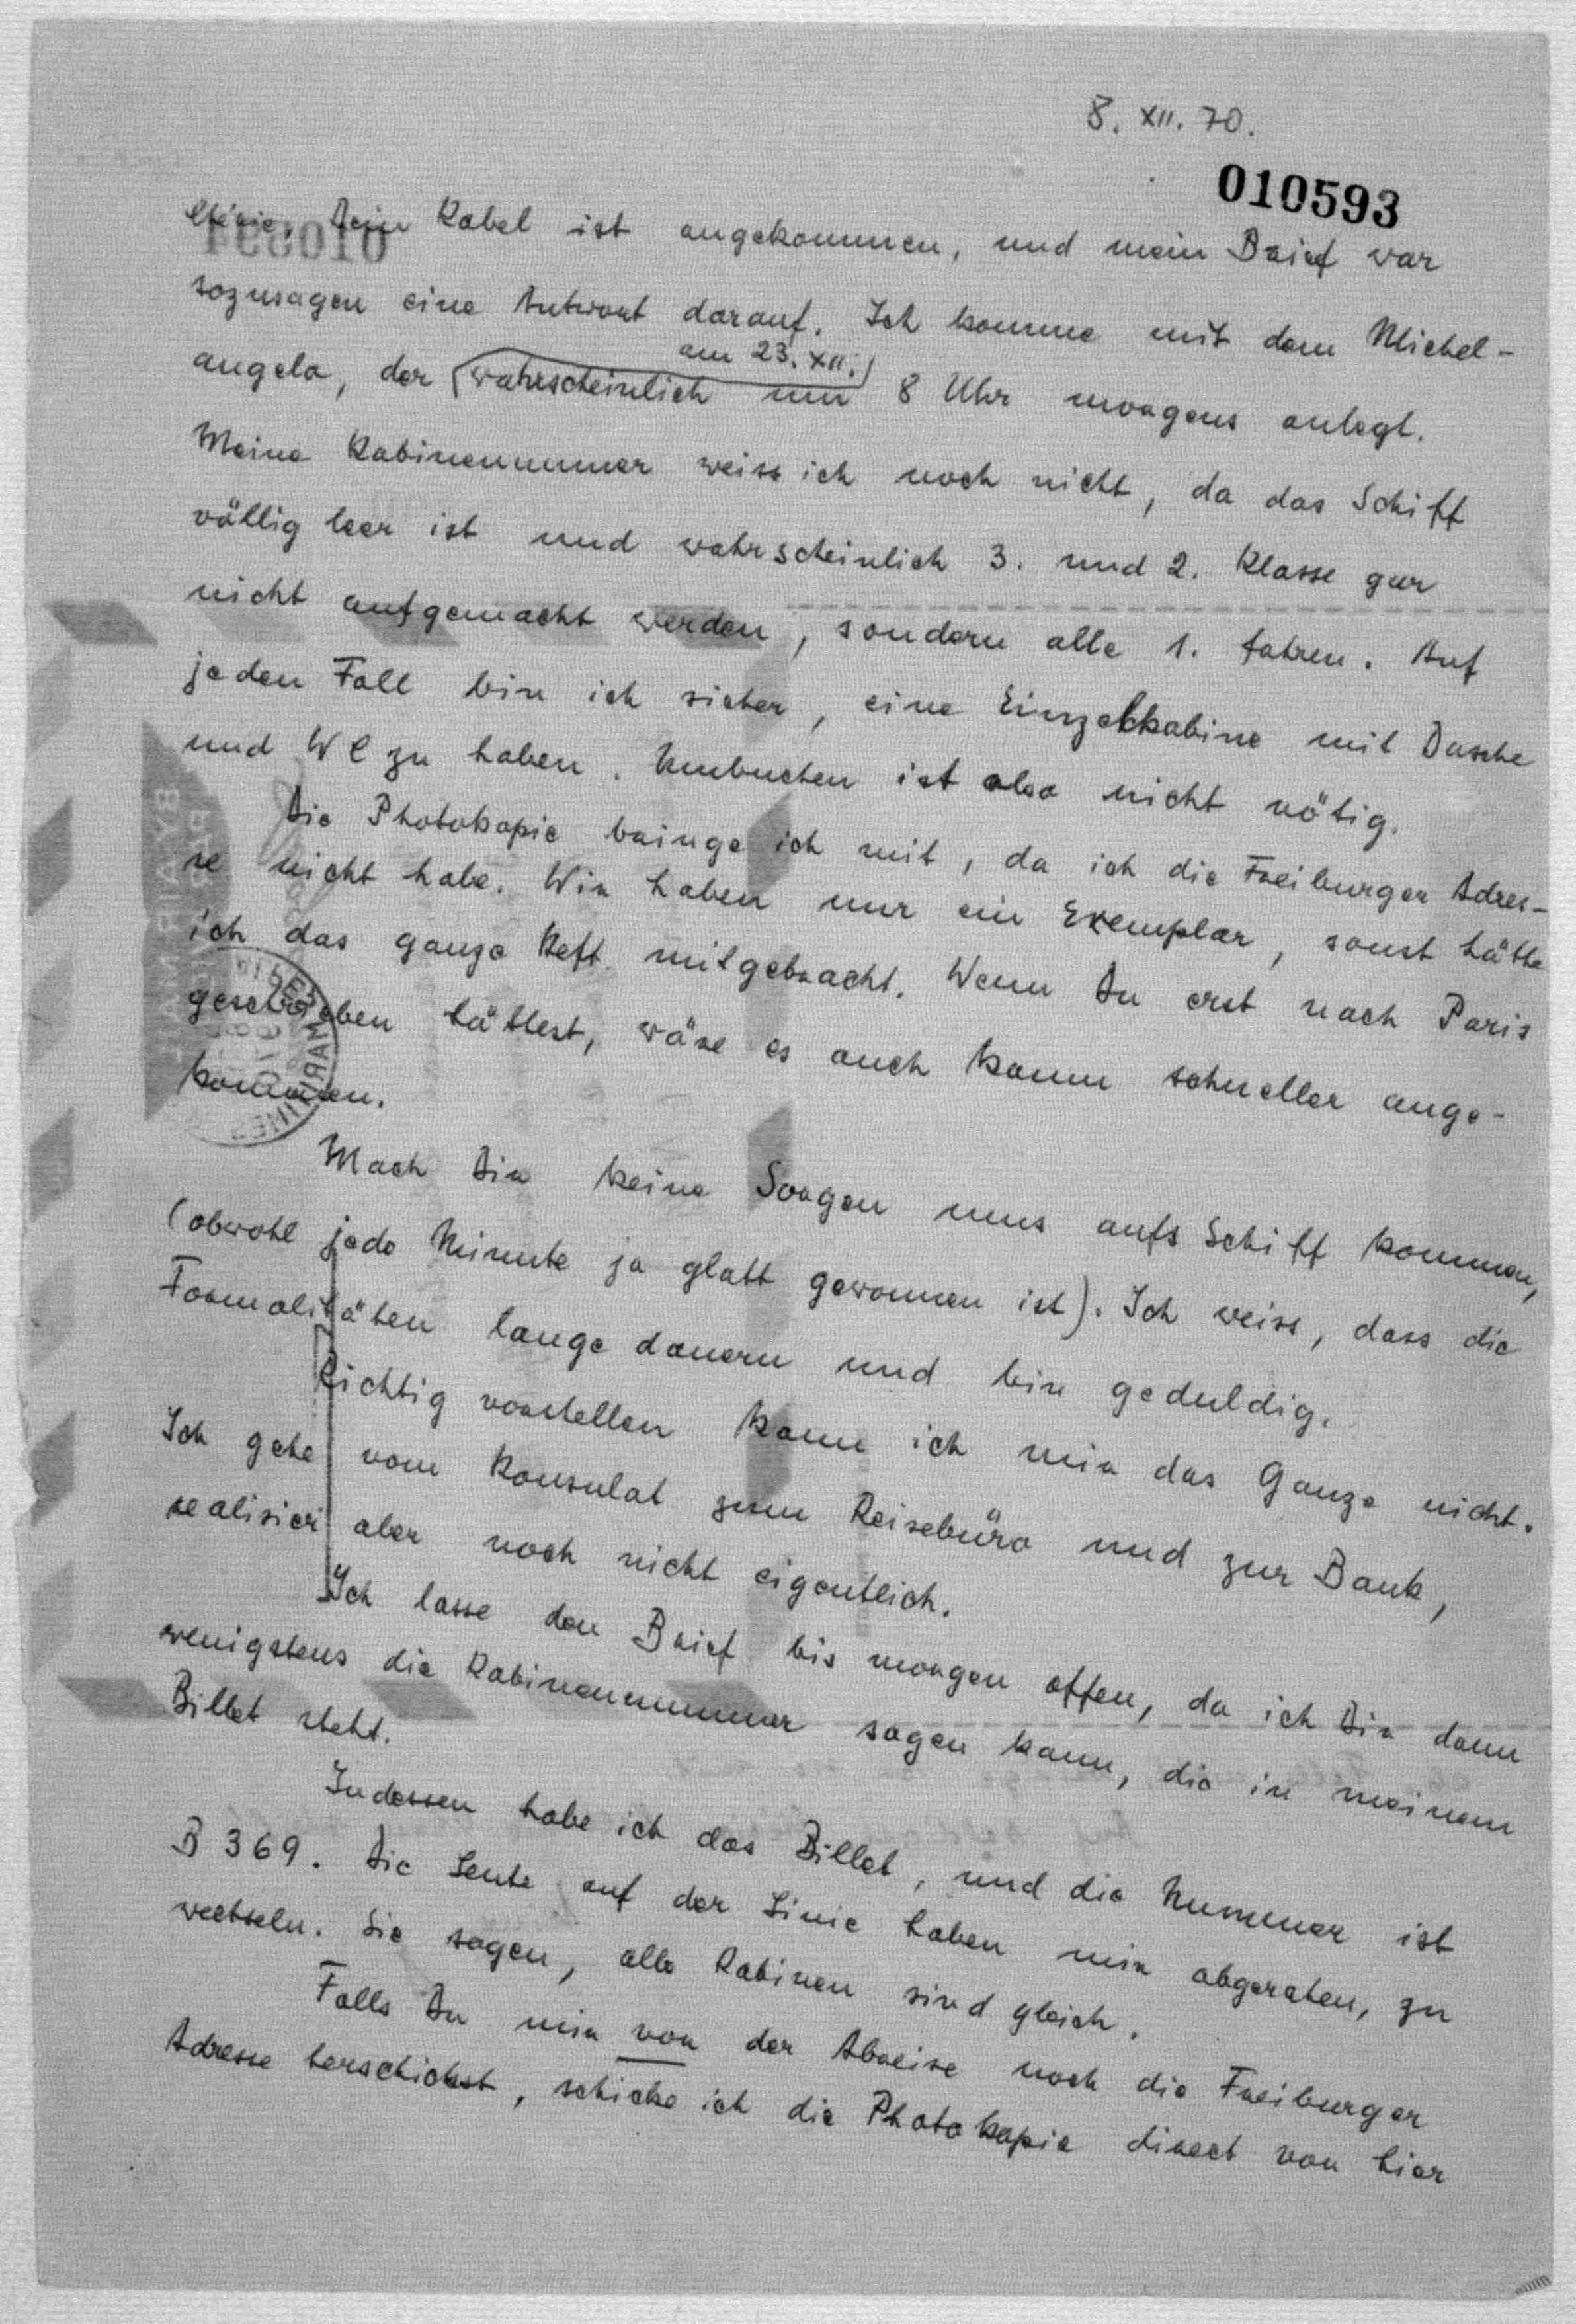 8. XII. 70.
010593
Dein Kabel ist angekommen, und mein Brief war
sozusagen eine Antwort darauf. Ich komme mit dem Michel-
am 23. XII.
angelo, der wahrscheinlich um 8 Uhr morgens anlegt.
Meine Kabinennummer weiss ich noch nicht, da das Schiff
völlig leer ist und wahrscheinlich 3. und 2. Klasse gar
nicht aufgemacht werden, sondern alle 1. fahren. Auf
jeden Fall bin ich sicher, eine Einzelkabine mit Dusche
und WC zu haben. Umbuchen ist also nicht nötig.
Die Photokopie bringe ich mit, da ich die Freiburger Adres-
se nicht habe. Wir haben nur ein Exemplar, sonst hätte
ich das ganze Heft mitgebracht. Wenn Du erst nach Paris
geschrieben hättest, wäre es auch kaum schneller ange-
kommen.
Mach Dir keine Sorgen ums aufs Schiff kommen,
(obwohl jede Minute ja glatt gewonnen ist). Ich weiss, dass die
Formalitäten lange dauern und bin geduldig.
Richtig vorstellen kann ich mir das Ganze nicht.
Ich gehe vom Konsulat zum Reisebüro und zur Bank,
realisier aber noch nicht eigentlich.
Ich lasse den Brief bis morgen offen, da ich Dir dann
wenigstens die Kabinennummer sagen kann, die in meinem
Billet steht.
Indessen habe ich das Billet, und die Nummer ist
B 369. Die Leute auf der Linie haben mir abgeraten, zu
wechseln. Sie sagen, alle Kabinen sind gleich.
Falls Du mir vor der Abreise noch die Freiburger
Adresse herschickst, schicke ich die Photokopie direct von hier